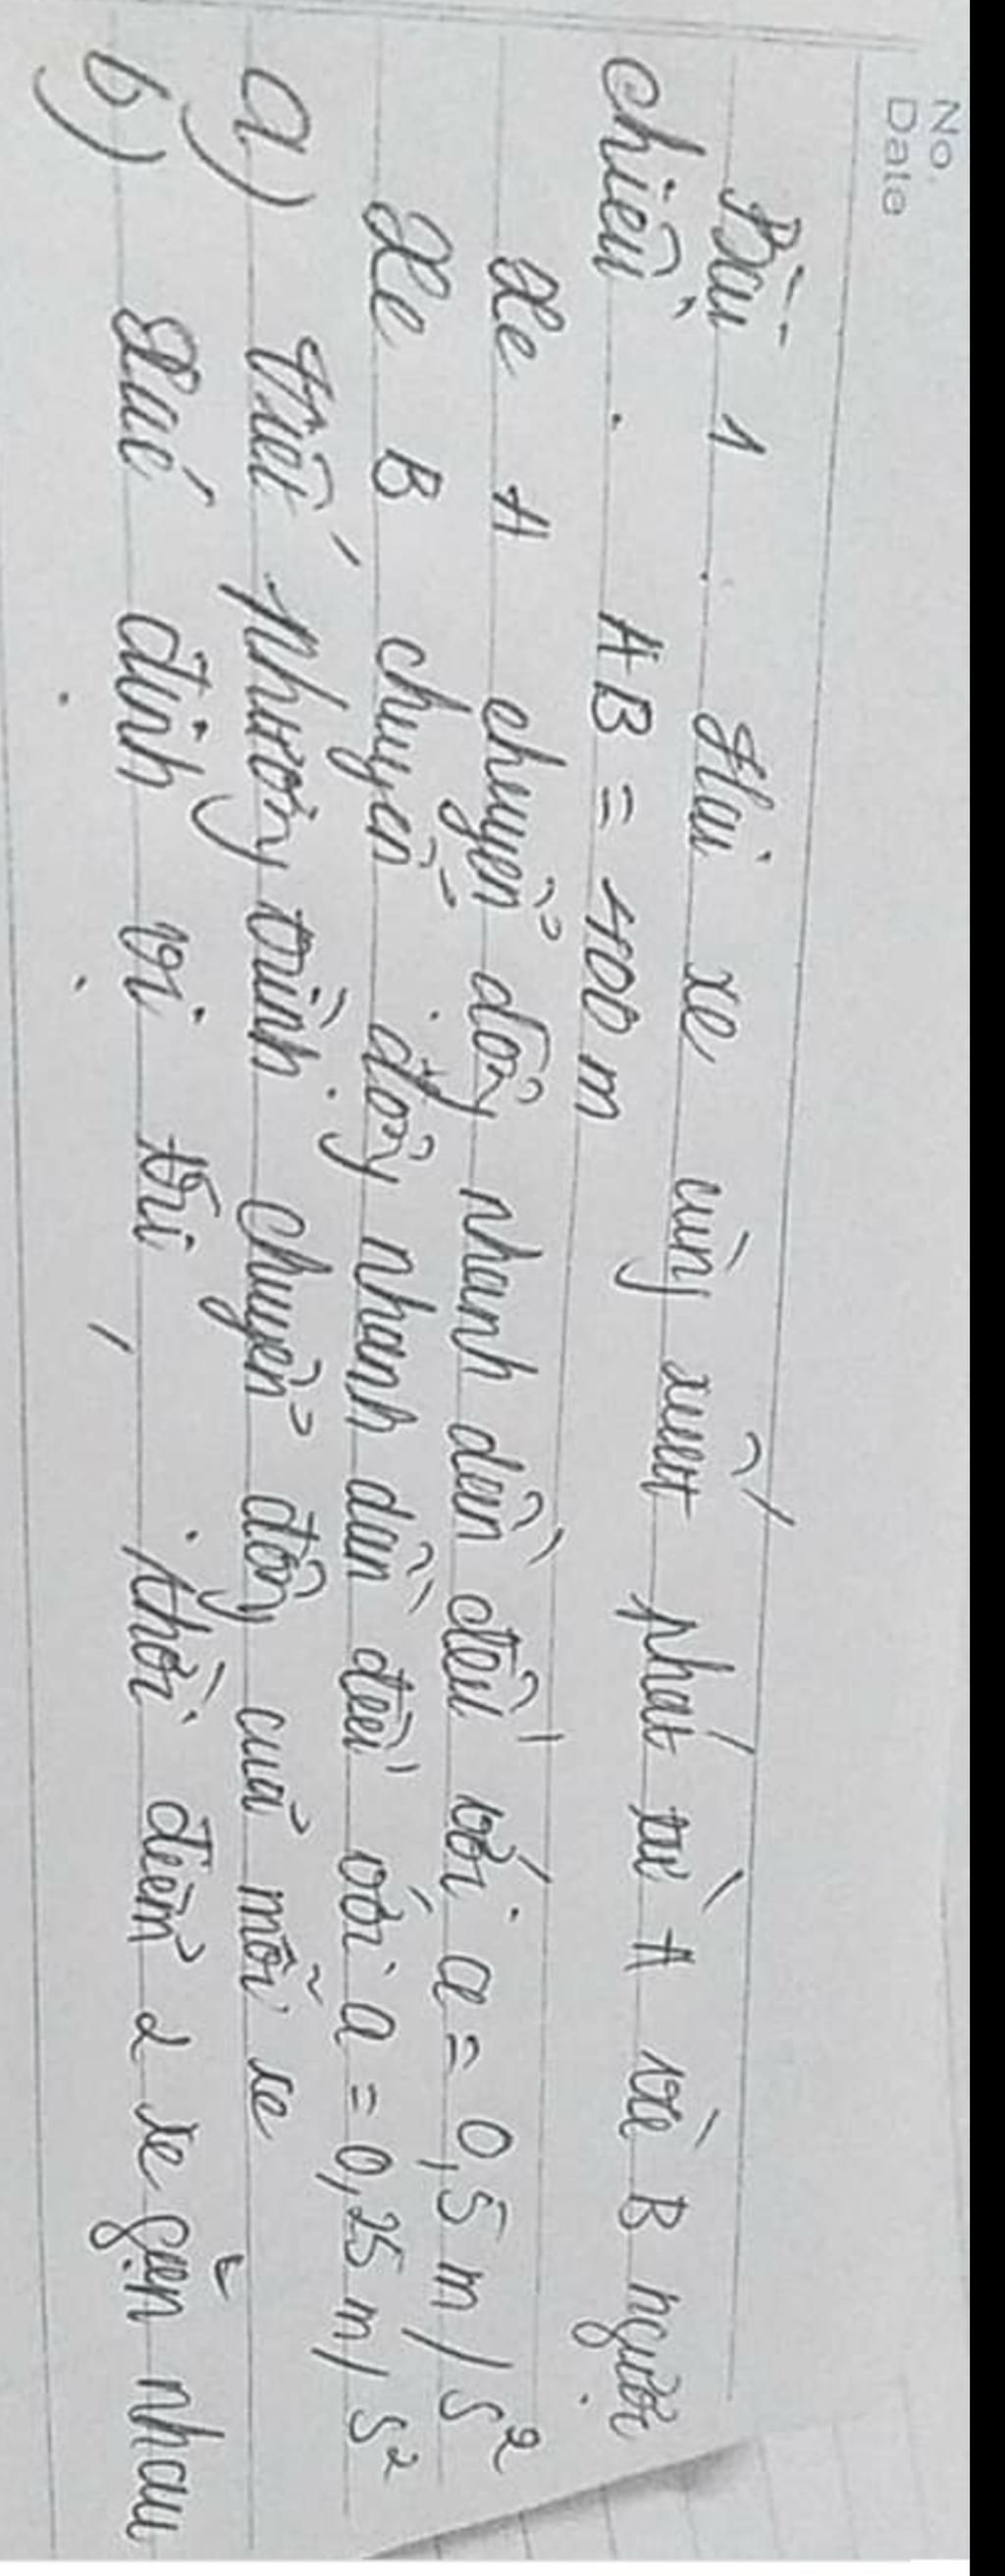 No.
Date
Bài 1. Hai xe cùng xuất phát từ A và B ngược
chiều. AB = 400 m
Xe A chuyển động nhanh dần đều với a = 0,5 m/s²
Xe B chuyển động nhanh dần đều với a = 0,25 m/s²
a) Viết phương trình chuyển động của mỗi xe
b) Xác định vị trí, thời điểm 2 xe gặp nhau